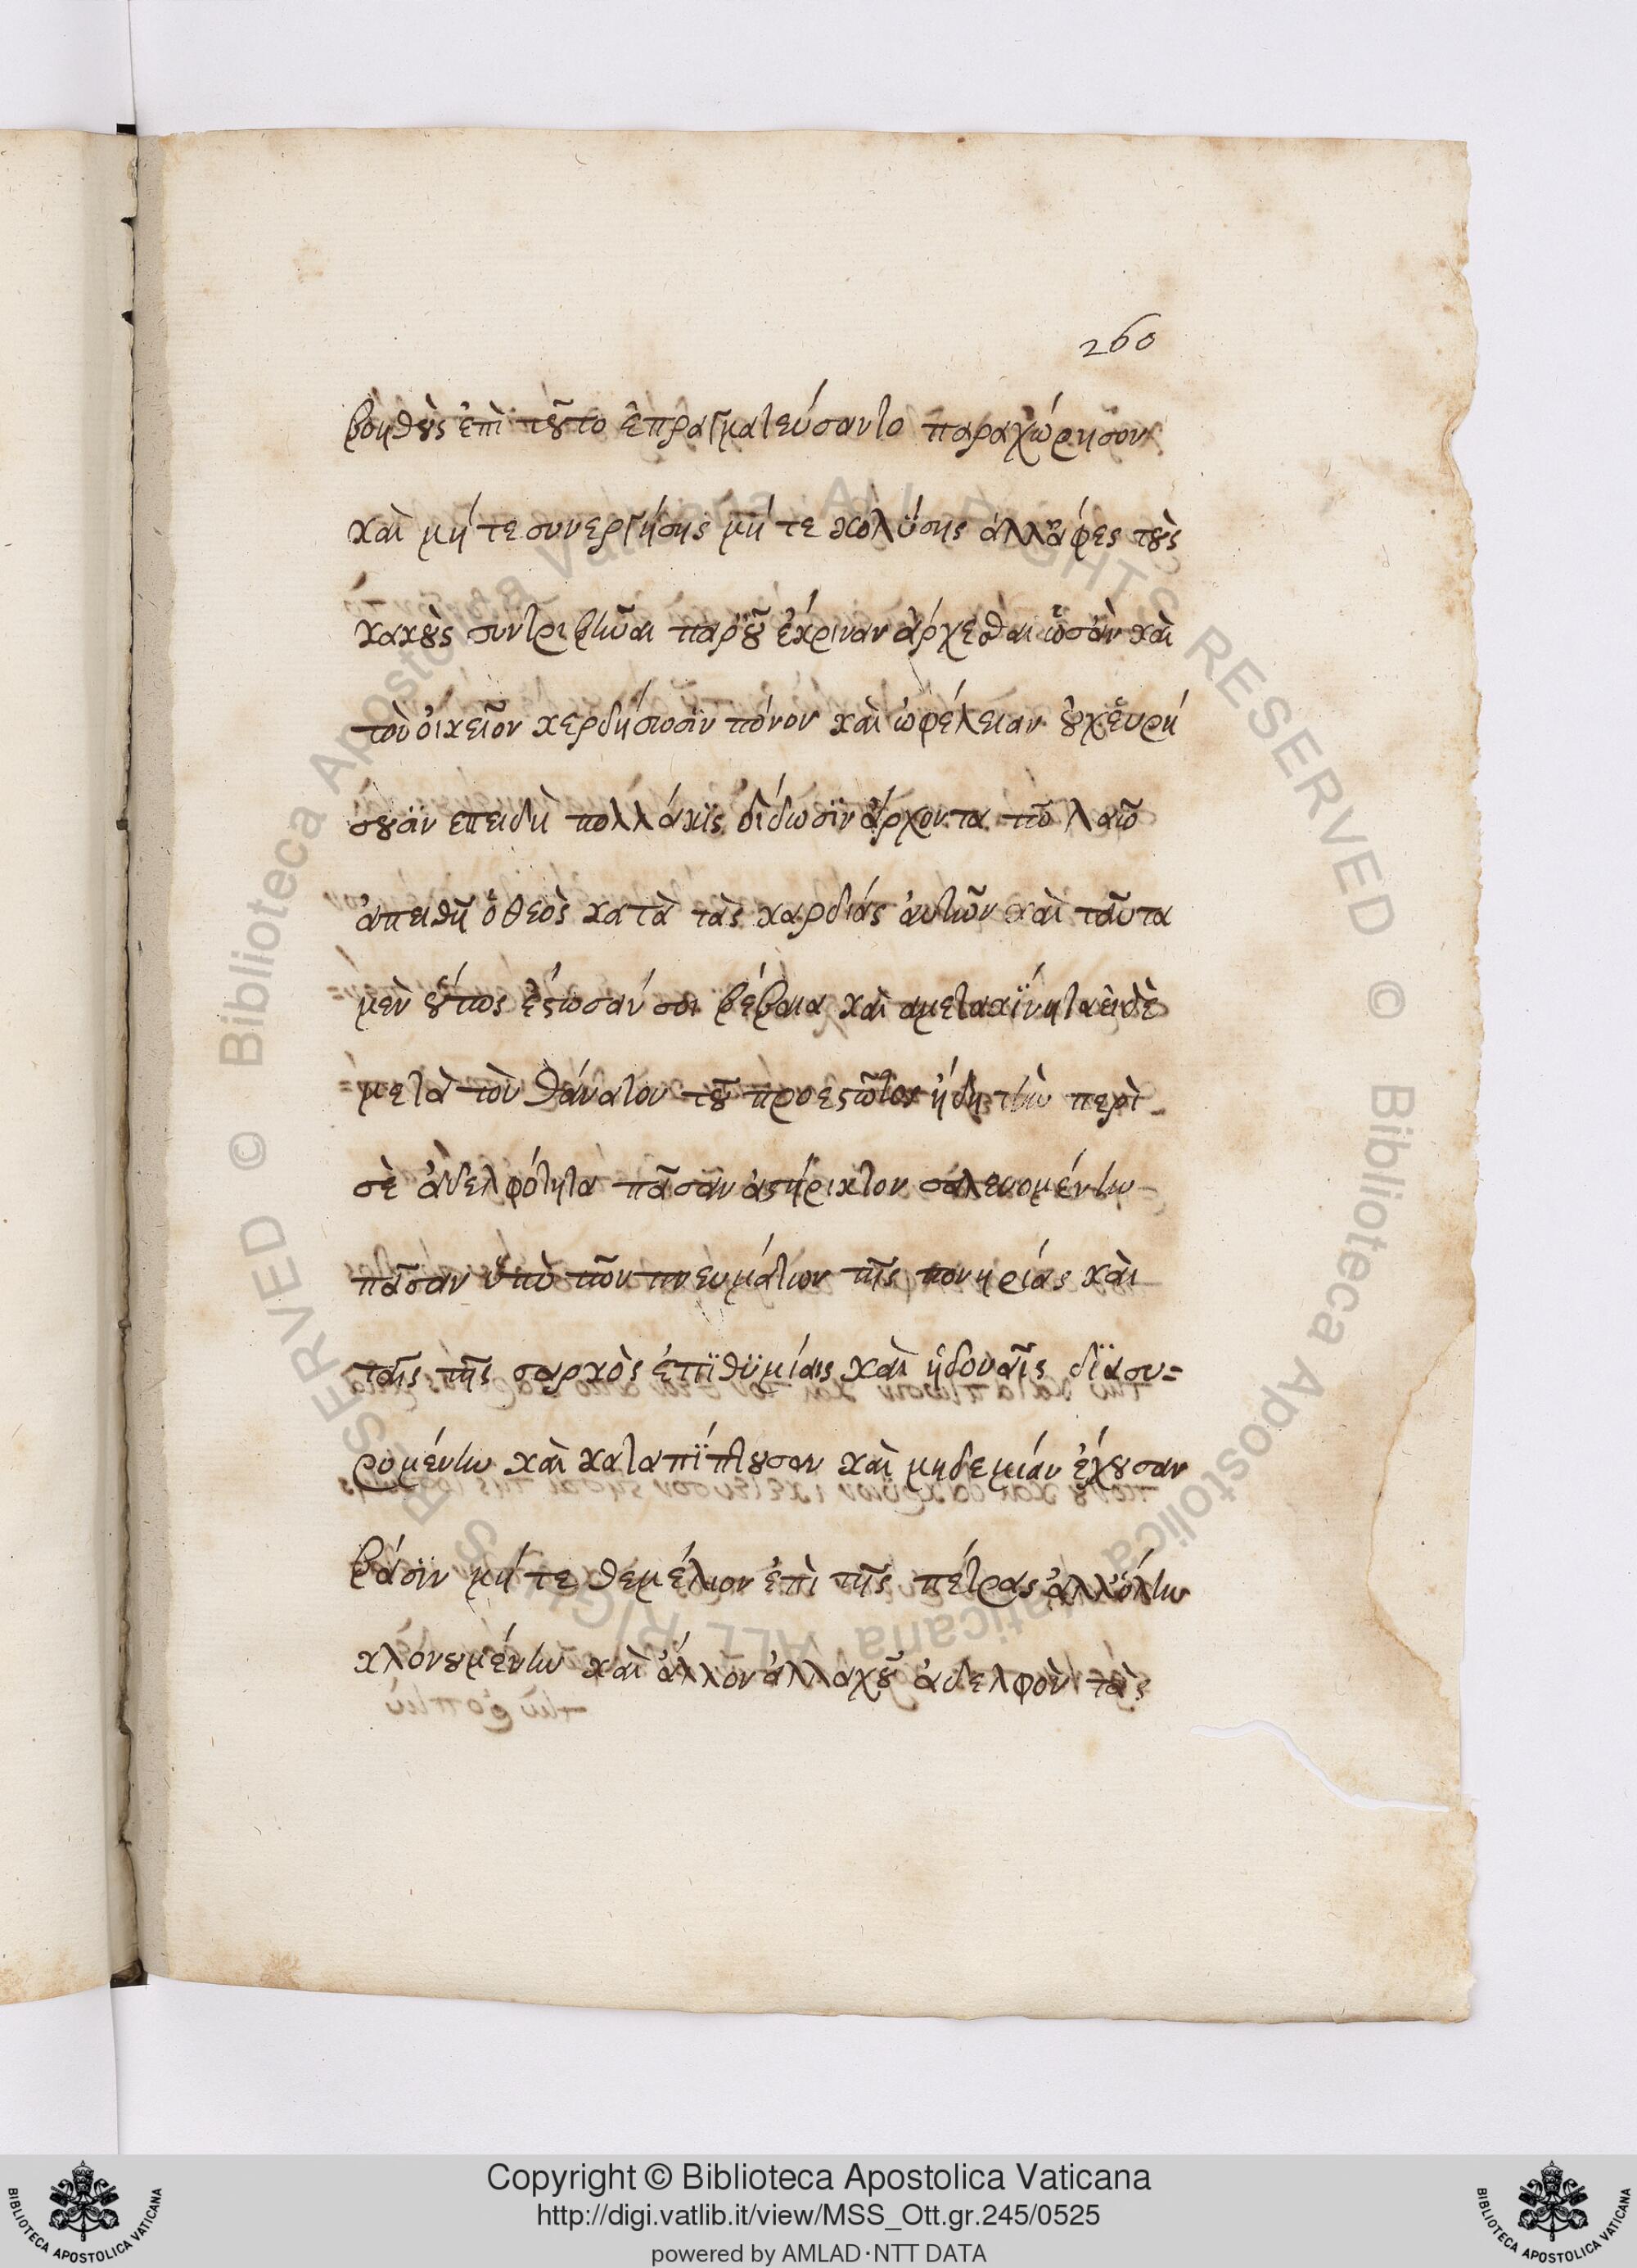 260
βοηθοὺς ἐπὶ τοῦτο ἐπραγματεύσαντο παραχώρησον
καὶ μήτε συνεργήσης μήτε κολύσης ἀλλἄφες τοὺς
κακοὺς συντριβῆναι παρ' οὗ ἔκριναν ἄρχεσθαι ὅσὰν καὶ
τὸν οἰκεῖον κερδήσωσϊν πόνον καὶ ὠφέλειαν οὐχ εὑρή
σουσϊν ἐπειδὴ πολλάκϊς δίδωσϊν ἄρχοντα τῶ λαῶ
ἀπειθῆ ὁ θεὸς κατὰ τὰς καρδίας ἀυτῶν καὶ ταῦτα
μὲν οὕτως ἔστωσάν σοι βέβαια καὶ αμετακϊνητα εἰδὲ
μετὰ τὸν θάνατον τοῦ προεστῶτος ἤδη τὴν περὶ
σὲ ἀδελφότητα πᾶσαν ἀστήρικτον σαλευομένην
πᾶσαν ὑπὸ τῶν πνευμάτων τῆς πονηρίας καὶ
ταῖς τῆς σαρκὸς ἐπϊθϋμίαις καὶ ἡδοναῖς δϊασυ=
ρομένην καὶ καταπϊπτουσαν καὶ μηδεμιάν ἔχουσαν
βάσϊν μήτε θεμέλιον ἐπὶ τῆς πέτρας ἀλλ' ὅλην
κλονουμένην καὶ ἄλλον ἀλλαχοῦ ἀδελφὸν τὰς
© Biblioteca Apostolica Vaticana ALL RIGHTS RESERVED © Biblioteca Apostolica Vaticana ALL RIGHTS RESERVED
Copyright © Biblioteca Apostolica Vaticana
http://digi.vatlib.it/view/MSS_Ott.gr.245/0525
powered by AMLAD·NTT DATA
BIBLIOTECA APOSTOLICA VATICANA
BIBLIOTECA APOSTOLICA VATICANA